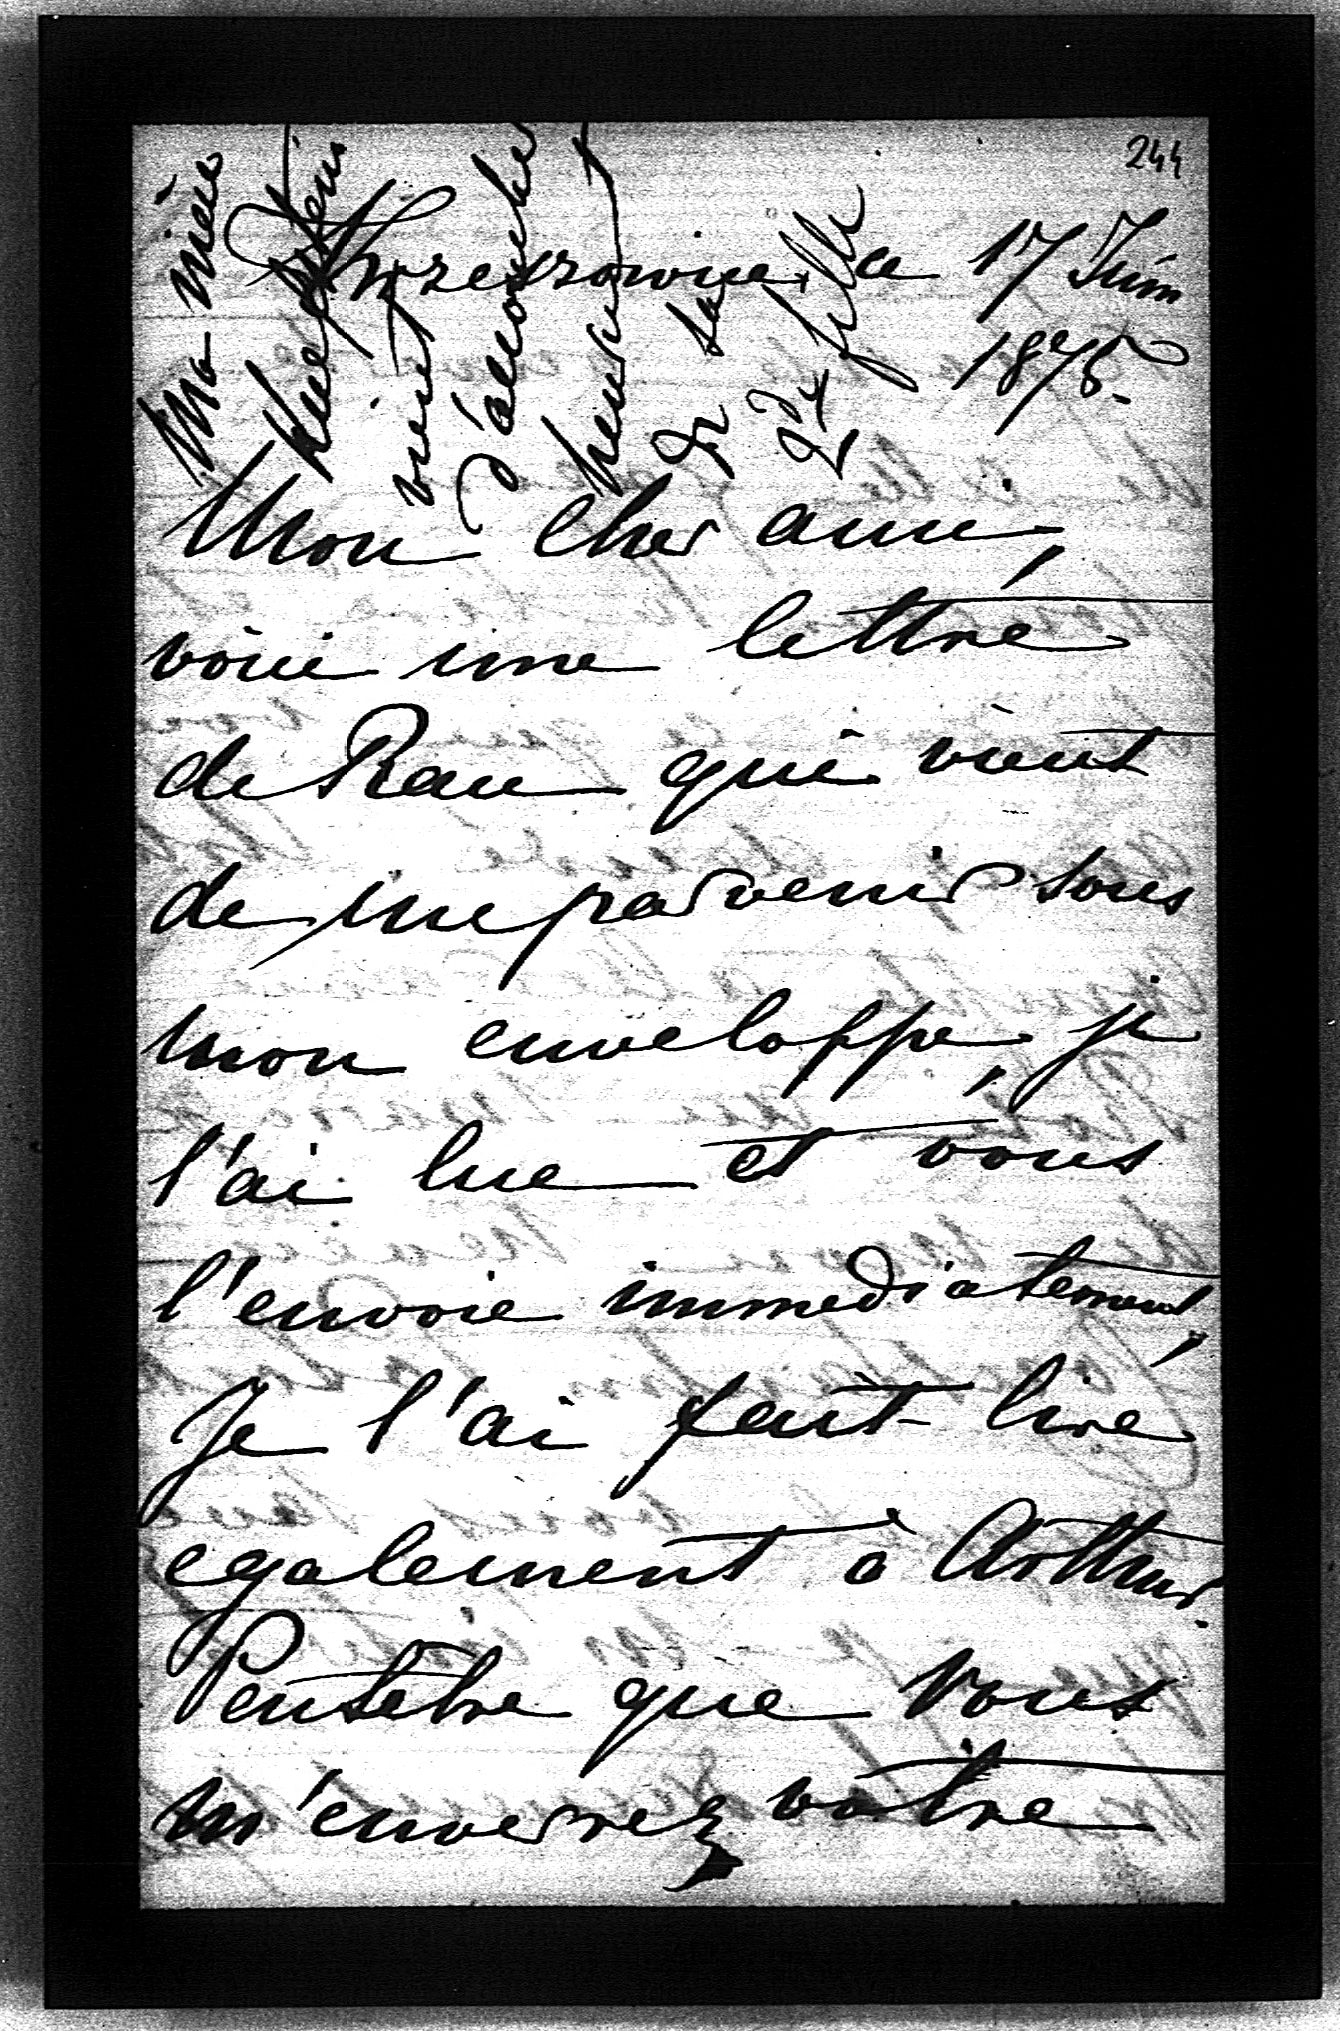 244
Krzeszowice ce 17 Juin
1875.
Mon cher ami,
voici une lettre
de Rau qui vient
de me parvenir sous
mon enveloppe, je
l'ai lue et vous
l'envoie immediatement,
Je l'ai fait lire
egalement à Arthur.
Peutêtre que vous
m'enverrez vôtre
Ma nièce
vient
d'accoucher
heureusement
de sa
2de fille